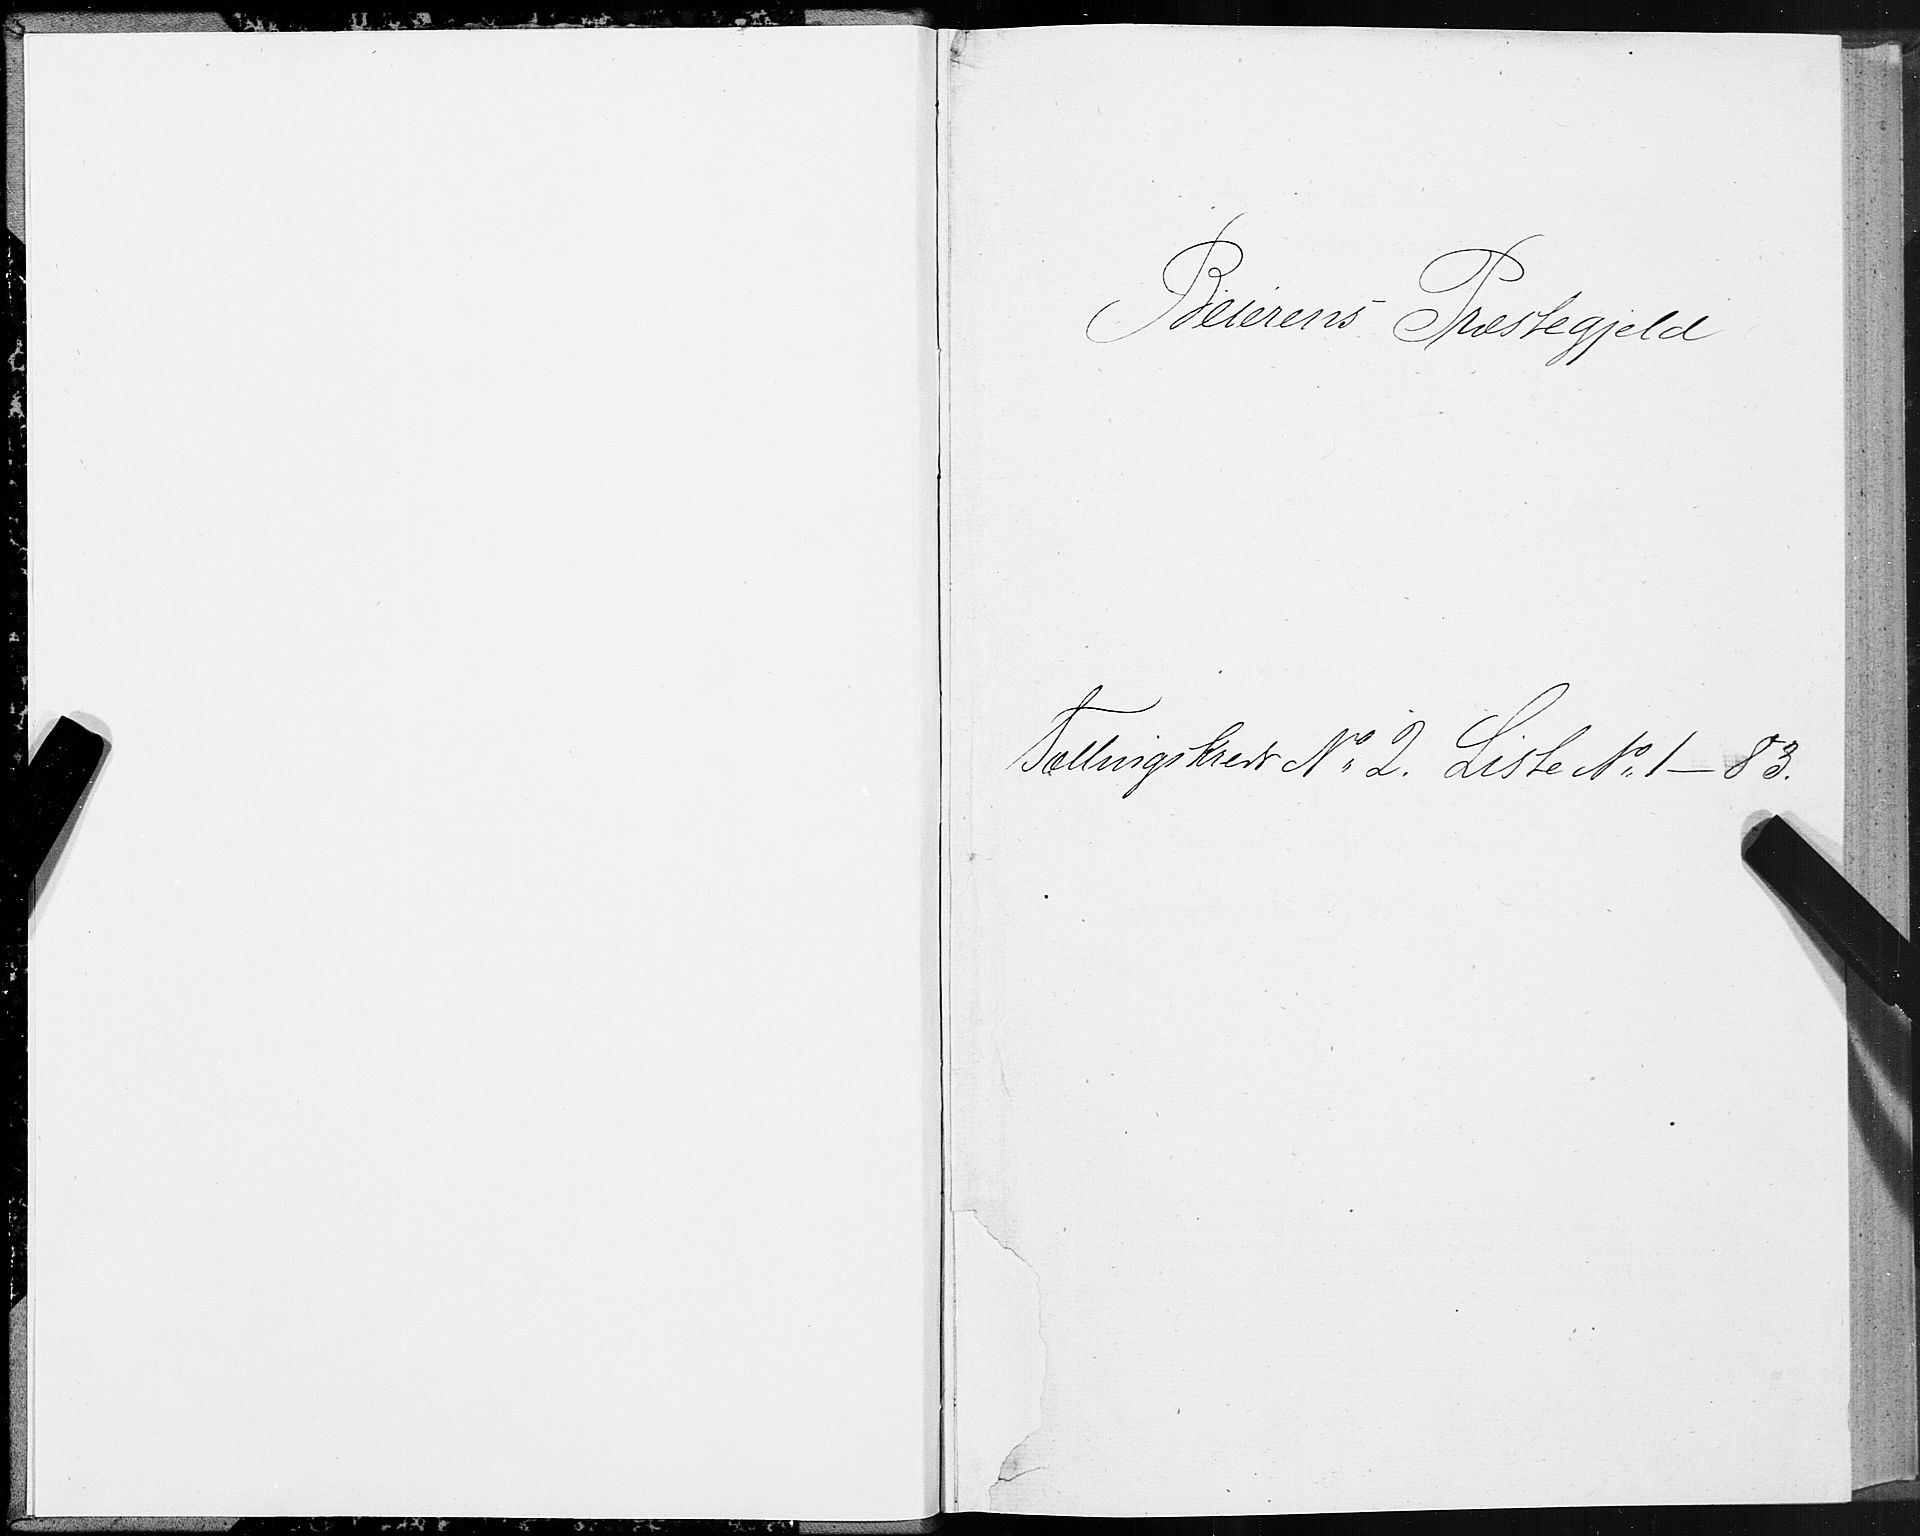 Beierens Præstegjeld
Tællingskreds No 2. Liste No 1 – 83.